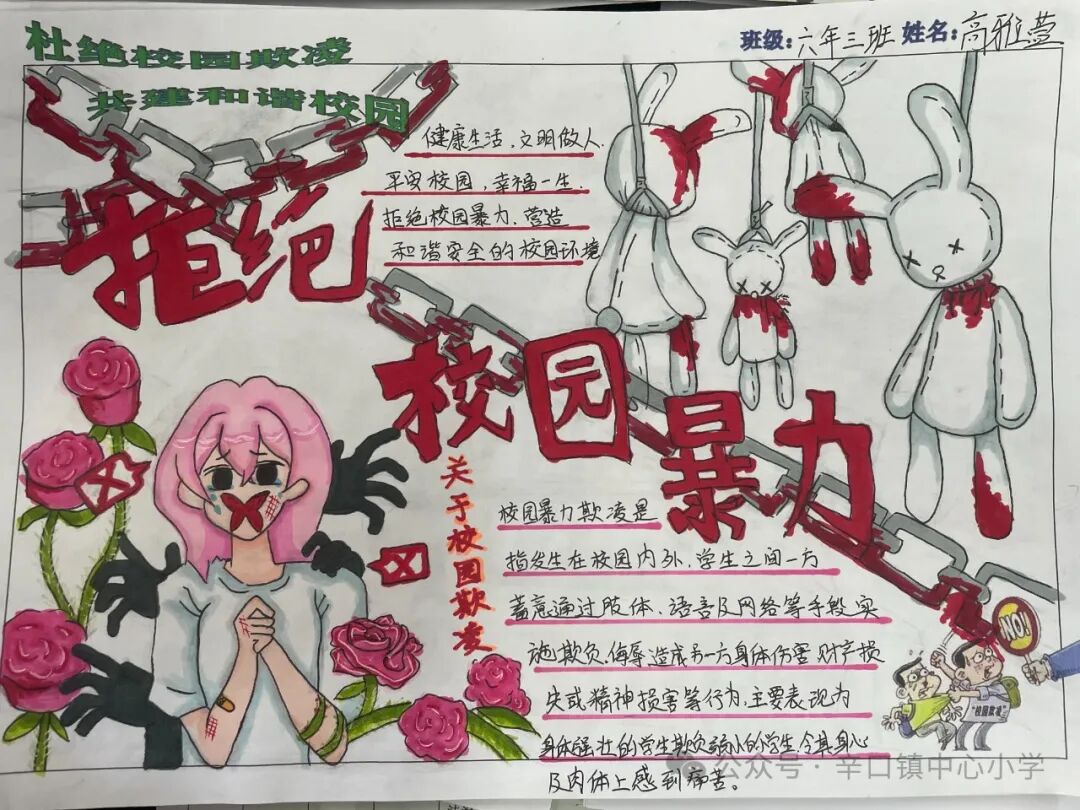 杜绝校园欺凌
共建和谐校园
班级:六年三班 姓名:高雅萱
健康生活,文明做人.
平安校园,幸福一生.
拒绝校园暴力、营造
和谐安全的校园环境
拒绝
校园
暴力
关于校园欺凌
校园暴力欺凌是
指发生在校园内外、学生之间一方
蓄意通过肢体、语言及网络等手段实
施欺负、侮辱造成另一方身体伤害、财产损
失或精神损害等行为.主要表现为
身体强壮的学生欺负弱小的学生,令其身心
及肉体上感到痛苦。
NO!
"校园欺凌"
公众号·辛口镇中心小学